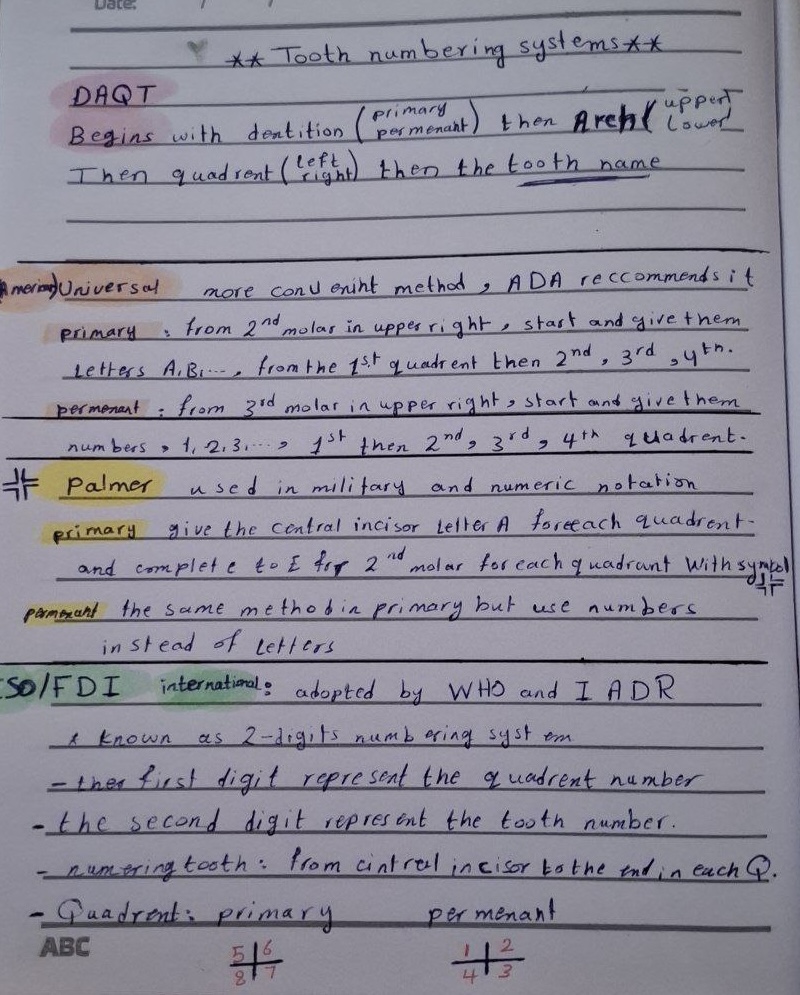 Date: / /
** Tooth numbering systems **
DAQT
Begins with dentition (primary permenant) then Arch (upper lower
Then quadrent (left right) then the tooth name
American) Universal more conVenint method, ADA reccommends it
primary : from 2nd molar in upper right, start and give them
Letters A,B,..., from the 1st quadrent then 2nd, 3rd, 4th.
permenant : from 3rd molar in upper right, start and give them
numbers, 1,2,3,..., 1st then 2nd, 3rd, 4th quadrent.
Palmer used in military and numeric notation
primary give the central incisor Letter A foreach quadrent.
and complete to E for 2nd molar for each quadrant With symbol
permenant the same method in primary but use numbers
instead of Letters
ISO/FDI international: adopted by WHO and IADR
* Known as 2-digits numbering system
- ther first digit represent the quadrent number
- the second digit represent the tooth number.
- numering tooth: from cintral incisor to the end in each Q.
- Quadrent: primary permenant
ABC
5 6 1 2
8 7 4 3